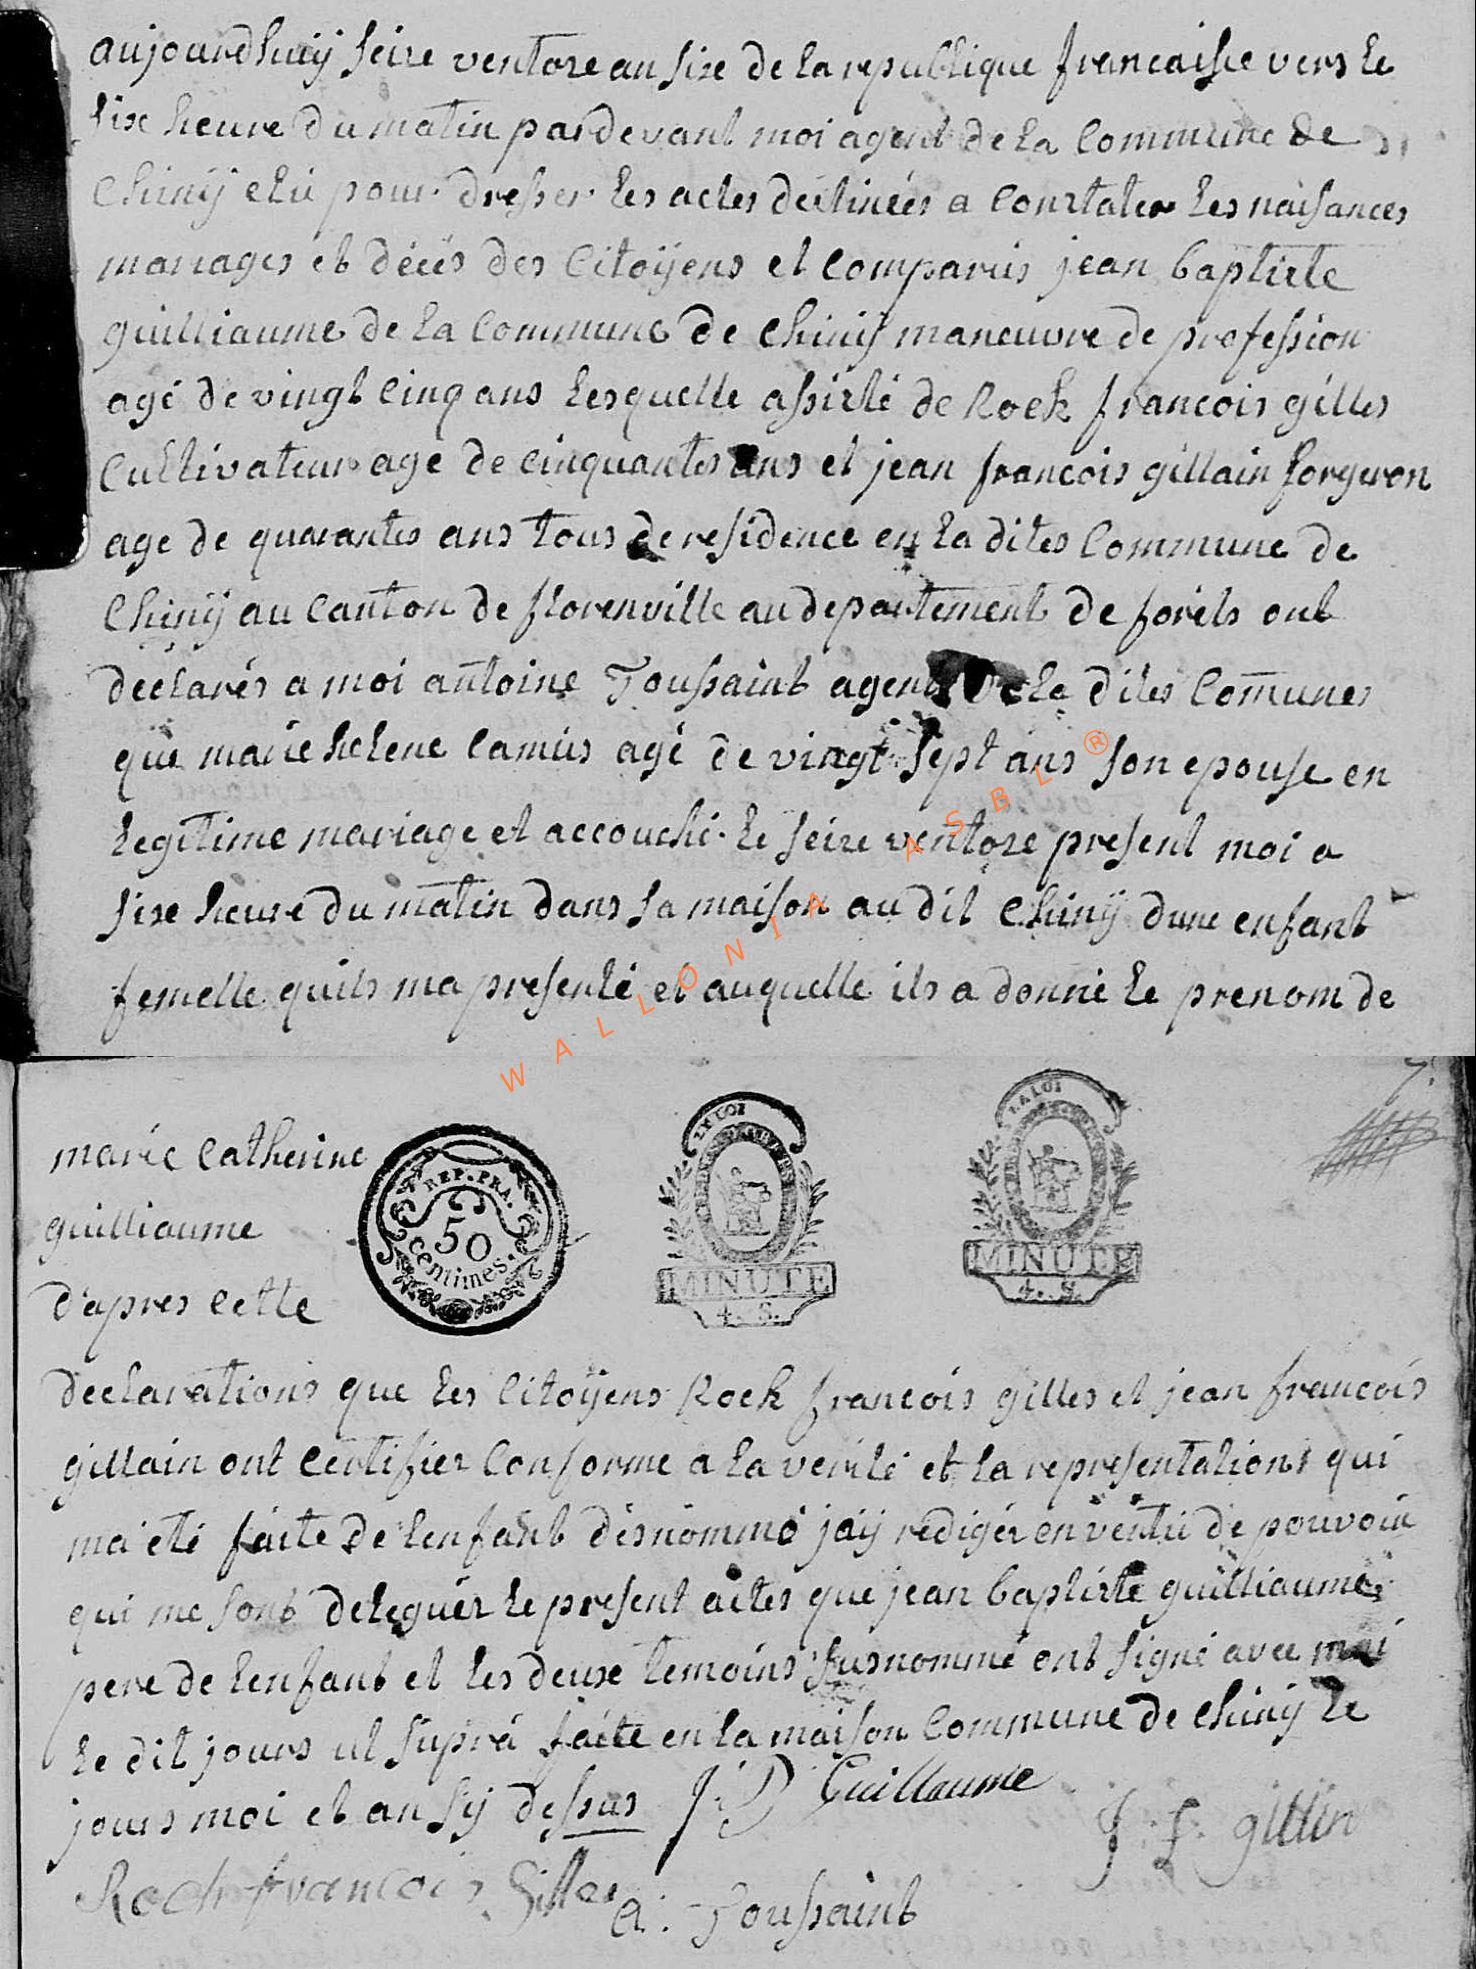 aujourdhuij seize ventose an sixe de la republique francaisse vers le
sixe heure du matin pardevant moi agent de la Commune de
Chinÿ elu pour dresser les actes destinées a Constater les naisances
mariages et décés des Citoÿens et Comparus jean baptiste
guilliaume de la Commune de Chinÿ maneuvre de profession
agé de vingt Cinq ans lesquelle assisté de Rock francois gilles
Cultivateur age de cinquantes ans et jean francois gillain forgeron
age de quarantes ans tous de residence en la dites Commune de
Chinÿ au Canton de florenville au departement de forêts ont
declarés a moi antoine Toussaint agent de la dites Comunes
que marie helene Camus agé de vingt sept ans son epouse en
legitime mariage et accouché le seize ventose present moi a
sixe heure du matin dans sa maison au dit Chinÿ dune enfant
femelle quils ma presenté et auquelle ils a donné le prenom de
WALLONIA ASBL ®
7.
marie Catherine
guilliaume
d'apres Cette
REP. FRA.
50
centimes.
LA LOI
MINUTE
4. S.
LA LOI
MINUTE
4. S.
declarations que les Citoÿens Rock francois gilles et jean francois
gillain ont Certifier Conforme a la verité et la representations qui
ma été faite de lenfant dénommé jaÿ rediger en vertu de pouvoir
qui me sont deleguér le present actes que jean baptiste guilliaume
pere de lenfant et les deuxe temoins susnommé ont signé avec moi
le dit jours ut supra faite en la maison Commune de Chinÿ le
jours moi et an sÿ dessus J: B Guillaume
J. f. gillin
Roch francois Gilles
a: Toussaint